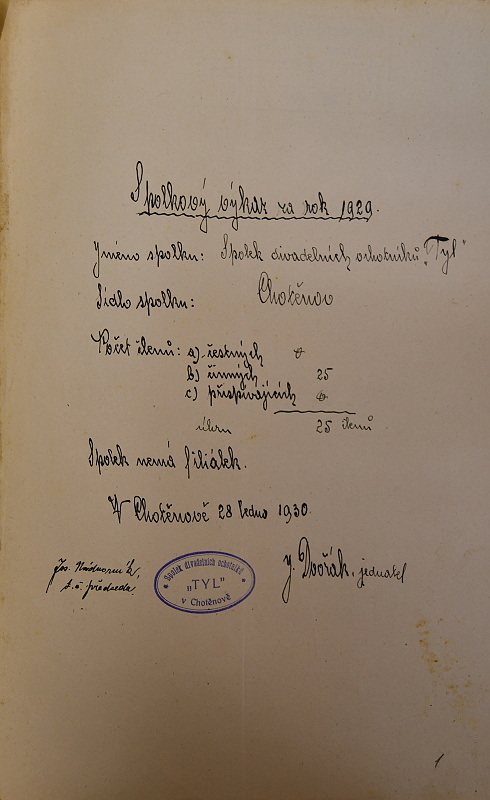 Spolkový výkaz za rok 1929.
Jméno spolku: Spolek divadelních ochotníků „Tyl"
Sídlo spolku: Chotěnov
Počet členů: a) čestných 0
b) činných 25
c) přispívajících 0
úhrn 25 členů
Spolek nemá filiálek.
V Chotěnově 28 ledna 1930.
Jos.
t. č. předseda
Spolek divadelních ochotníků
„TYL"
v Chotěnově
J. Dvořák, jednatel
1